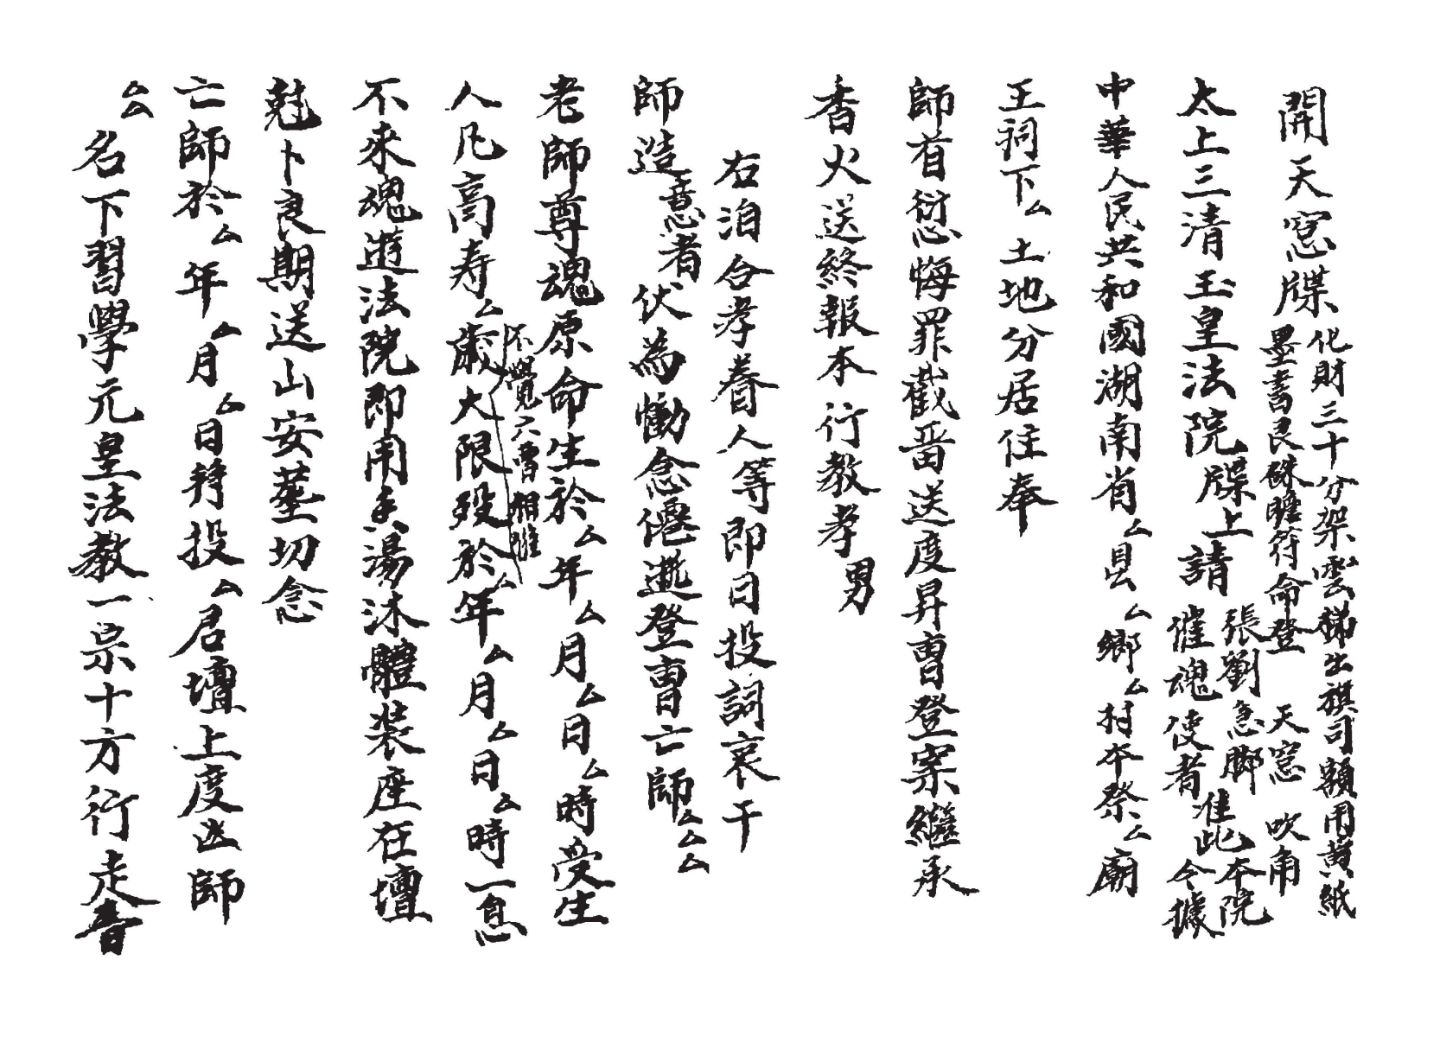 開天窓牒
化財三十分架雲梯出旗司額用黄紙
墨書良硃謄符命登 天窓 吹角
太上三清玉皇法院牒上請
張劉急脚 准此本院
催魂使者 今據
中華人民共和國湖南省厶县厶鄉厶村本祭厶廟
王祠下厶土地分居住奉
師首愆悔罪截畨送度昇曹登案繼承
香火送終報本行教孝男
右洎合孝眷人等即日投詞哀干
師造意者伏為慟念僊逝登曹亡師厶厶厶
老師尊魂原命生於厶年厶月厶日厶時受生
人凡高寿厶歲大限殁於厶年厶月厶日厶時一息
不覺六曹相催
不來魂遊法院即用香湯沐體装座在壇
尅卜良期送山安塟切念
亡師於厶年厶月厶日揹投厶君壇上度師
厶名下習學元皇法教一宗十方行走香